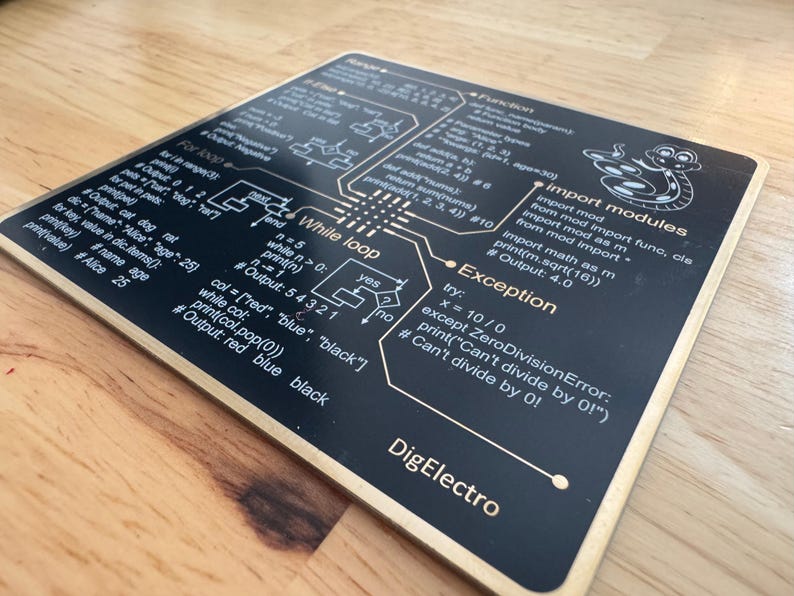 Range
If-Else
print("Positive")
print("Negative")
# Output: Negative
For loop
for i in range(3):
print(i)
# Output: 0 1 2
pets = ["cat", "dog", "rat"]
for pet in pets:
print(pet)
# Output: cat dog rat
dic = {"name": "Alice", "age": 25}
for key, value in dic.items():
print(key) # name age
print(value) #Alice 25
next
end
yes
no
While loop
n = 5
while n > 0:
print(n)
# Output: 5 4 3 2 1
col = ["red", "blue", "black"]
while col:
print(col.pop(0))
# Output: red blue black
yes
?
no
Function
def func_name(param):
# Function body
return value
# Parameter types
def add(a, b):
return a + b
print(add(2, 4)) # 6
def add(*nums):
return sum(nums)
print(add(1, 2, 3, 4)) #10
Import modules
import mod
from mod import func, cls
import mod as m
from mod import *
import math as m
print(m.sqrt(16))
# Output: 4.0
Exception
try:
x = 10 / 0
except ZeroDivisionError:
print("Can't divide by 0!")
# Can't divide by 0!
DigElectro